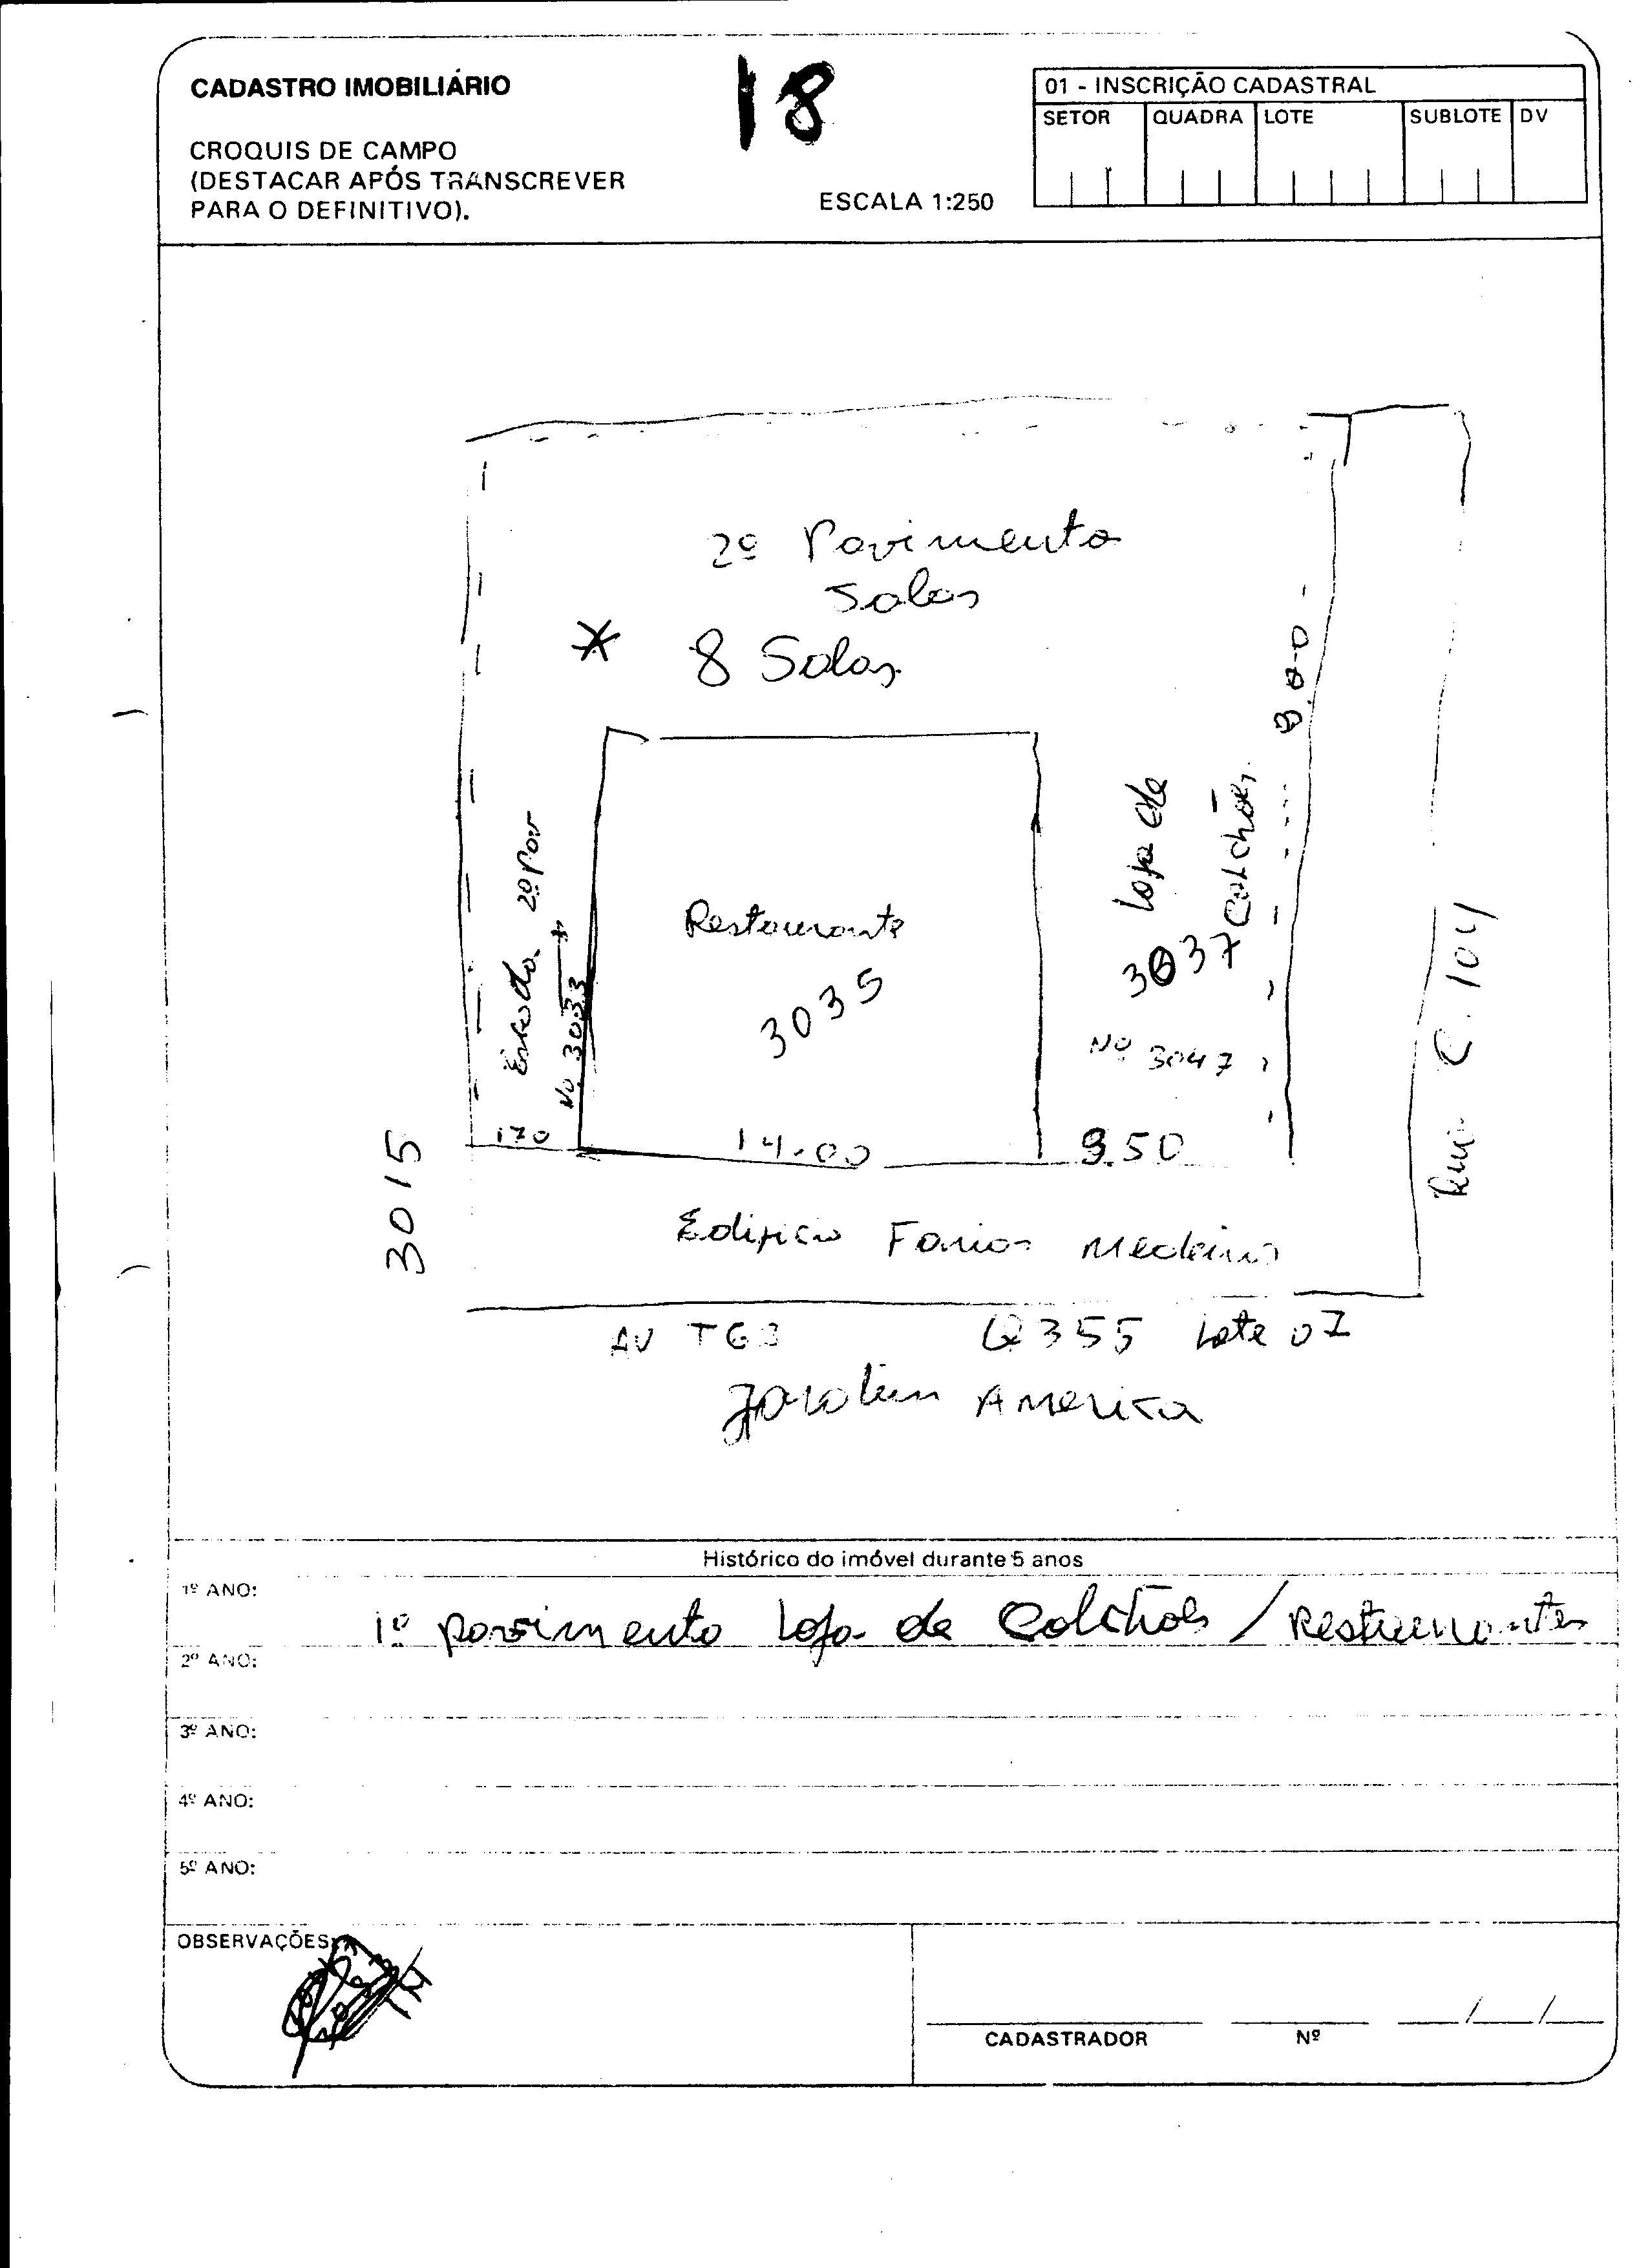 CADASTRO IMOBILIÁRIO
18
01 - INSCRIÇÃO CADASTRAL
SETOR QUADRA LOTE SUBLOTE DV
CROQUIS DE CAMPO
(DESTACAR APÓS TRANSCREVER
PARA O DEFINITIVO).
ESCALA 1:250
2º Pavimento
Salas
* 8 Salas
3.00
Loja de
Colchões
3037
Nº 3047
Restaurante
3035
2º Pav
Nº 3033
170
14.00
9.50
3015
Rua C.104
Edificio Farias Medeiros
AV T63 Q355 Lote 07
Jardim America
Histórico do imóvel durante 5 anos
1º ANO:
1º pavimento Loja de Colchões / Restaurantes
2º ANO:
3º ANO:
4º ANO:
5º ANO:
OBSERVAÇÕES:
CADASTRADOR Nº